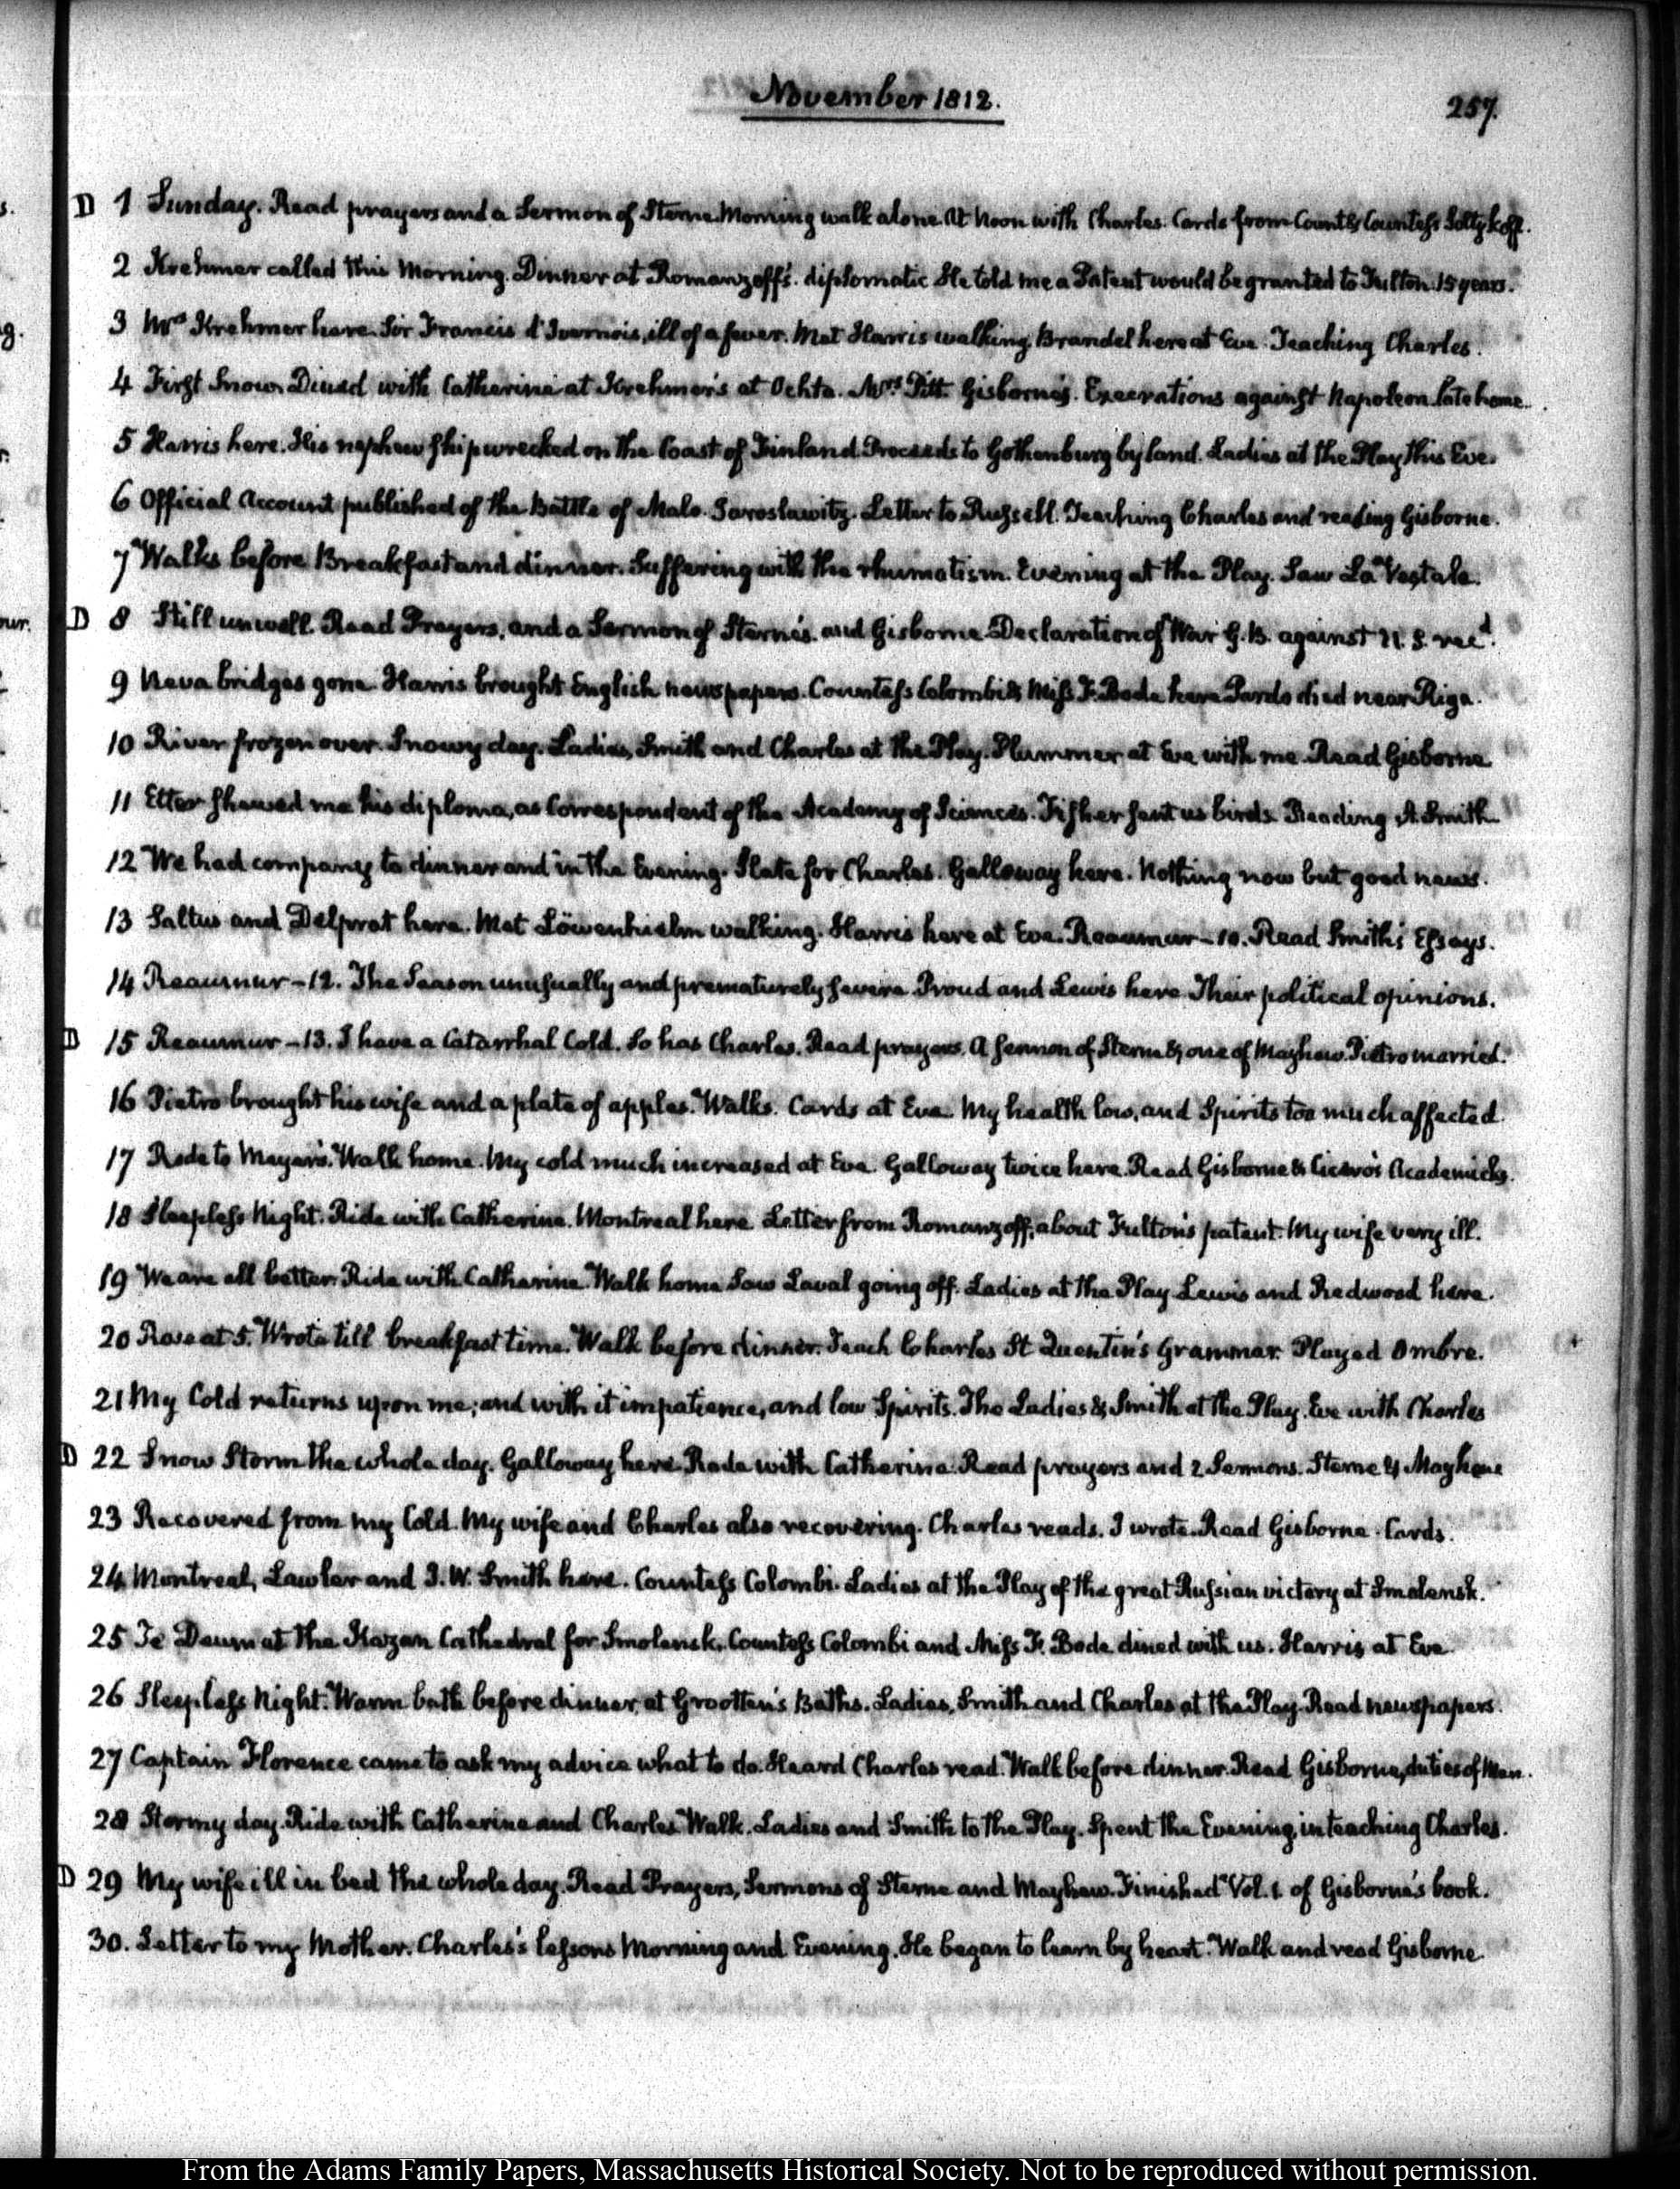 November 1812.
257.
D 1 Sunday. Read prayers and a Sermon of Sterne. Morning walk alone. At Noon with Charles. Cards from Count & Countess Soltykoff.
2 Krehmer called this Morning. Dinner at Romanzoff's. diplomatic He told me a Patent would be granted to Fulton. 15 years.
3 Mrs Krehmer here. Sir Francis d'Ivernois, ill of a fever. Met Harris walking. Brandel here at Eve. Teaching Charles.
4 First Snow. Dined with Catherine at Krehmer's at Ochta. Mrs. Pitt. Gisborne's. Execrations against Napoleon. late home.
5 Harris here. His nephew shipwrecked on the Coast of Finland. Proceeds to Gothenburg by land. Ladies at the Play this Eve.
6 Official Account published of the Battle of Malo-Jaroslawitz. Letter to Russell. Teaching Charles and reading Gisborne.
7 Walks before Breakfast and dinner. Suffering with the rhumatism. Evening at the Play. Saw La Vestale.
D 8 Still unwell. Read Prayers, and a Sermon of Sterne's. and Gisborne. Declaration of War G. B. against U. S. recd.
9 Neva bridges gone. Harris brought English newspapers. Countess Colombi & Miss F. Bode here. Pardo died near Riga.
10 River frozen over. Snowy day. Ladies, Smith and Charles at the Play. Plummer at Eve with me. Read Gisborne
11 Etter shewed me his diploma, as Correspondent of the Academy of Sciences. Fisher sent us birds. Reading A. Smith.
12 We had company to dinner and in the Evening. Slate for Charles. Galloway here. Nothing now but good news.
13 Saltus and Delprat here. Met Löwenhielm walking. Harris here at Eve. Reaumur -10. Read Smith's Essays.
14 Reaumur -12. The Season unusually and prematurely severe. Proud and Lewis here Their political opinions.
D 15 Reaumur -13. I have a Catarrhal Cold. So has Charles. Read prayers. A Sermon of Sterne & one of Mayhew. Pietro married.
16 Pietro brought his wife and a plate of apples. Walks. Cards at Eve. My health low, and Spirits too much affected.
17 Rode to Meyer's. Walk home. My cold much increased at Eve. Galloway twice here. Read Gisborne & Cicero's Academicks.
18 Sleepless Night. Ride with Catherine. Montreal here. Letter from Romanzoff, about Fulton's patent. My wife very ill.
19 We are all better. Ride with Catherine. Walk home Saw Laval going off. Ladies at the Play Lewis and Redwood here.
20 Rose at 5. Wrote till breakfast time. Walk before dinner. Teach Charles St Quentin's Grammar. Played Ombre.
21 My Cold returns upon me; and with it impatience, and low Spirits. The Ladies & Smith at the Play. Eve with Charles
D 22 Snow Storm the whole day. Galloway here. Rode with Catherine. Read prayers and 2 Sermons. Sterne & Mayhew
23 Recovered from my Cold. My wife and Charles also recovering. Charles reads. I wrote. Read Gisborne. Cards.
24 Montreal, Lawler and I. W. Smith here. Countess Colombi. Ladies at the Play of the great Russian victory at Smolensk.
25 Te Deum at the Kazan Cathedral for Smolensk. Countess Colombi and Miss F. Bode dined with us. Harris at Eve.
26 Sleepless Night. Warm bath before dinner, at Grootten's Baths. Ladies, Smith and Charles at the Play. Read newspapers.
27 Captain Florence came to ask my advice what to do. Heard Charles read. Walk before dinner. Read Gisborne, duties of Men.
28 Stormy day. Ride with Catherine and Charles. Walk. Ladies and Smith to the Play. Spent the Evening, in teaching Charles.
D 29 My wife ill in bed the whole day. Read Prayers, Sermons of Sterne and Mayhew. Finished Vol. 1. of Gisborne's book.
30. Letter to my Mother. Charles's lessons Morning and Evening. He began to learn by heart. Walk and read Gisborne.
From the Adams Family Papers, Massachusetts Historical Society. Not to be reproduced without permission.